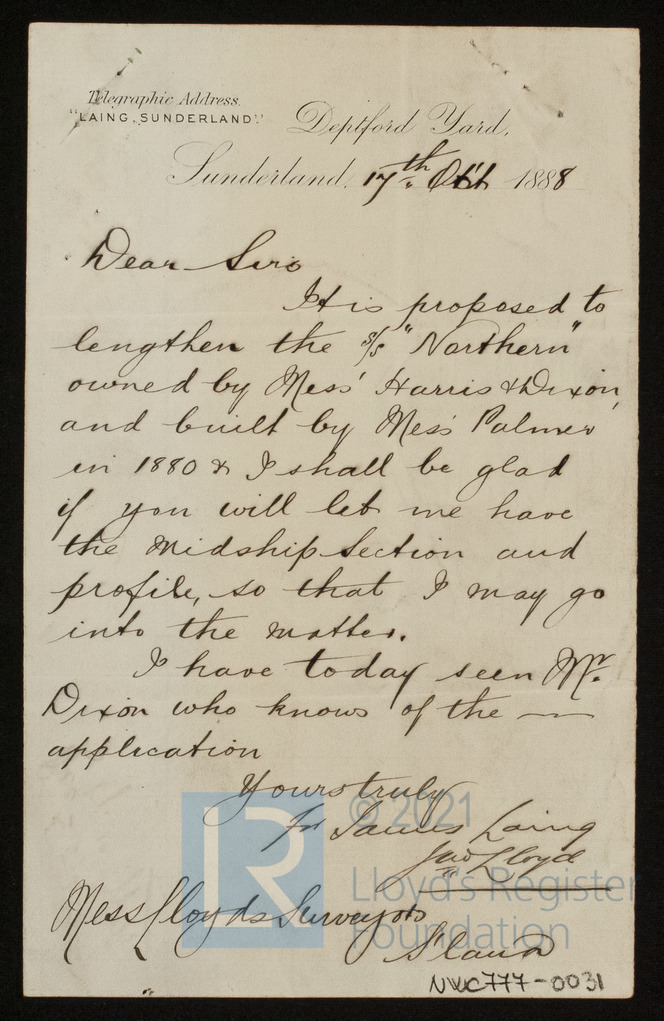 Telegraphic Address.
"LAING, SUNDERLAND".
Deptford Yard,
Sunderland, 17th Oct 1888
Dear Sirs
It is proposed to
lengthen the s/s "Northern"
owned by Mess' Harris & Dixon,
and built by Mess' Palmer
in 1880 & I shall be glad
if you will let me have
the Midship Section and
profile, so that I may go
into the matter.
I have today seen Mr.
Dixon who knows of the —
application
Yours truly
for James Laing
Jno Lloyd
Mess Lloyds Surveyors
S'land
NWC777-0031
LR
© 2021
Lloyd's Register
Foundation